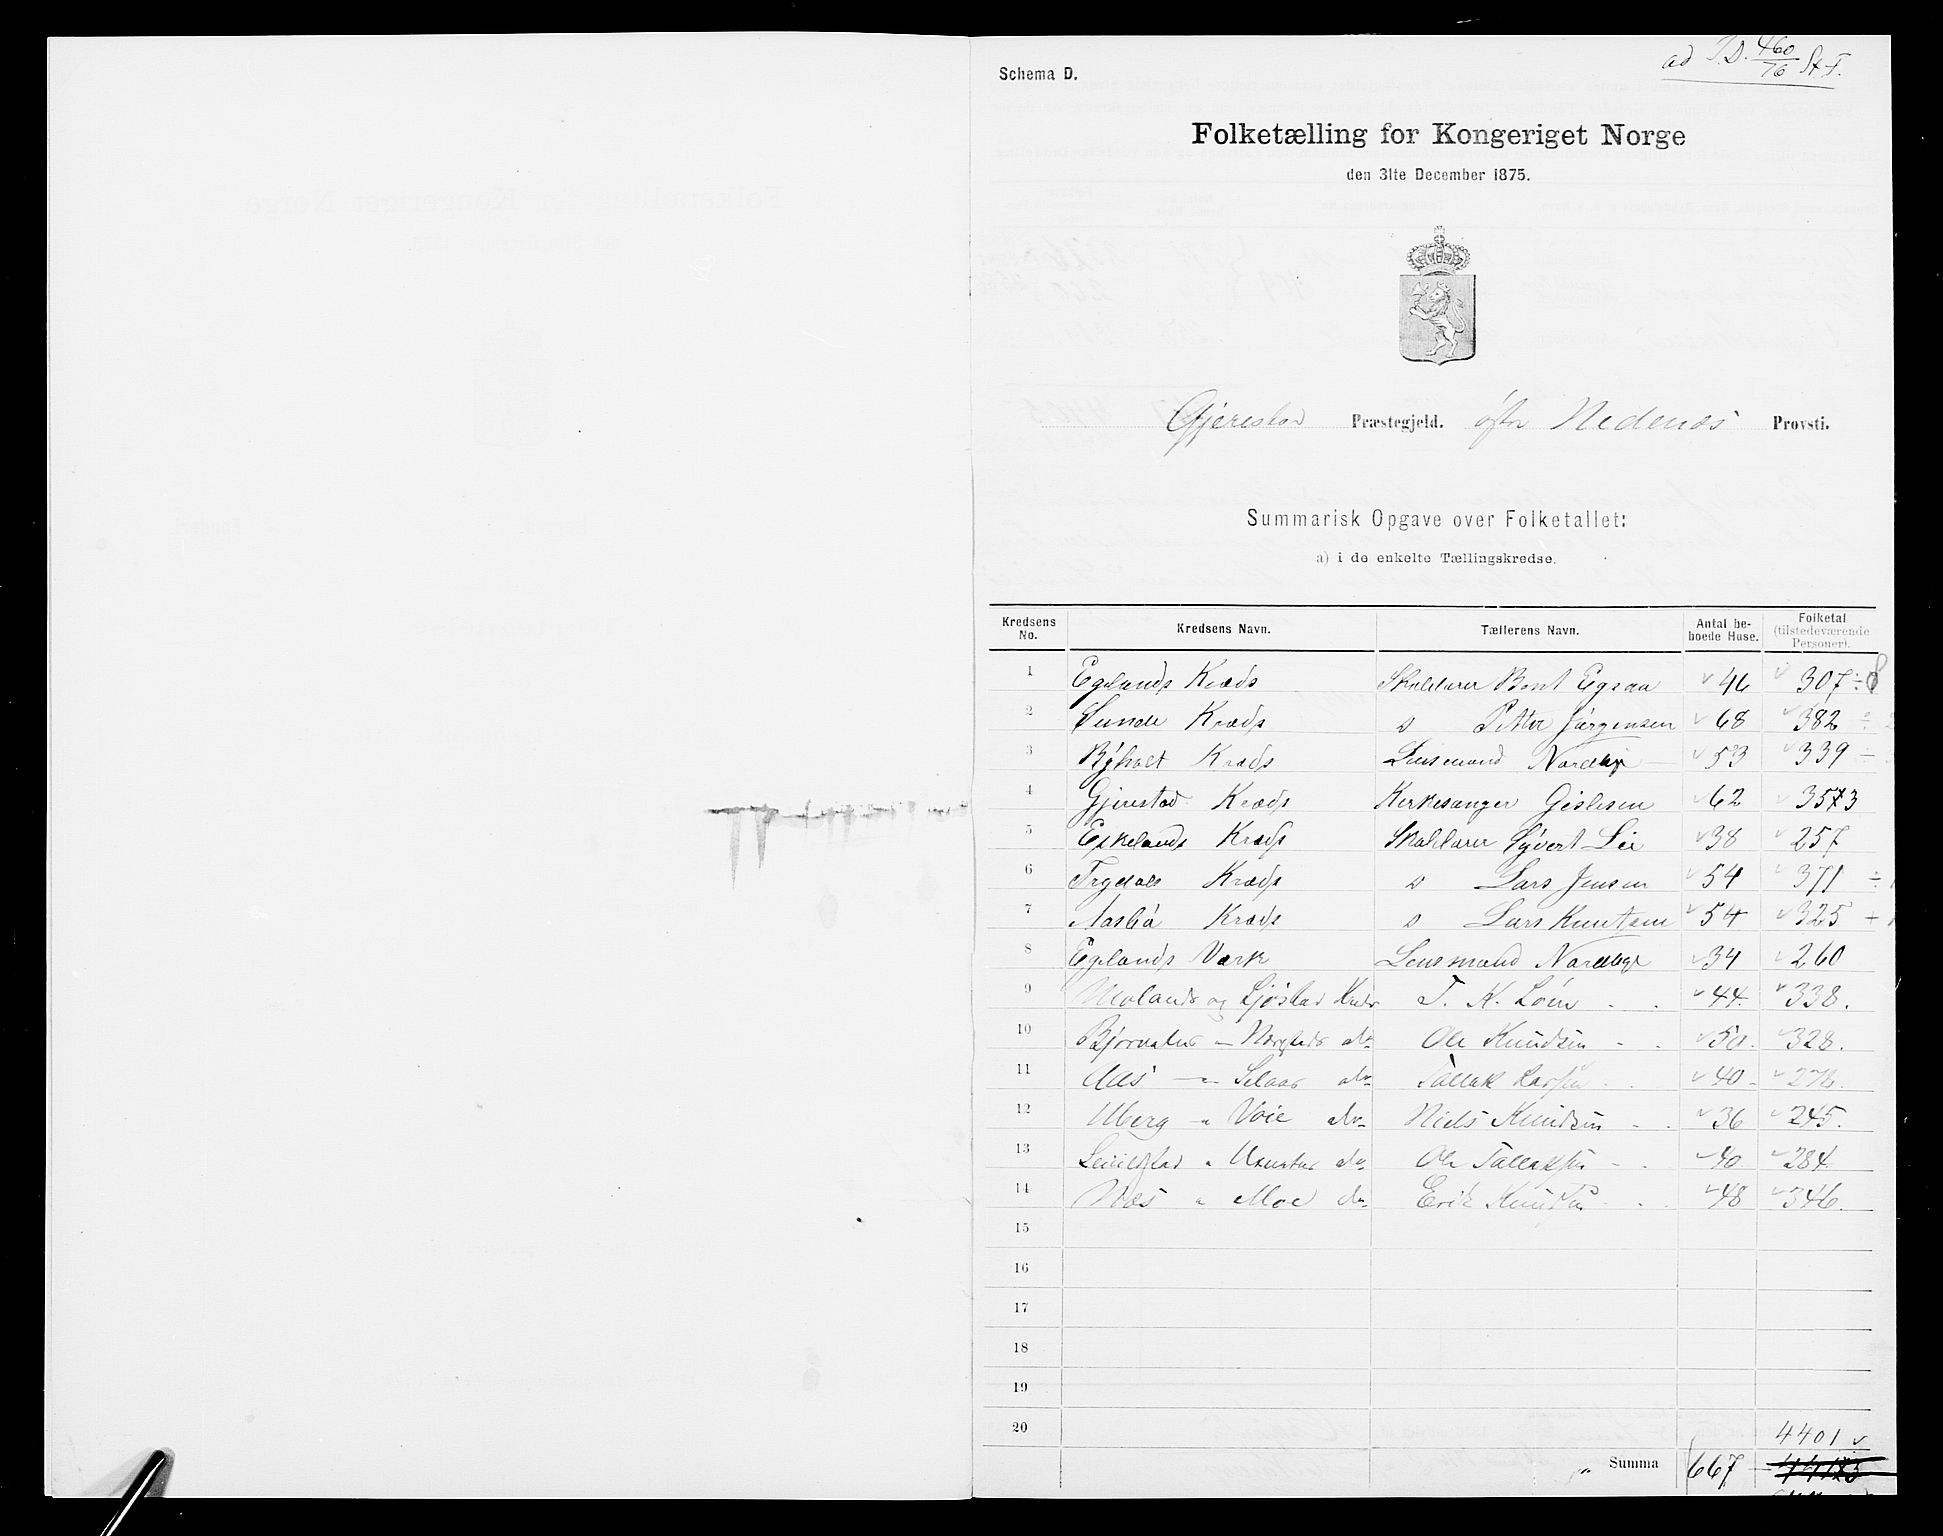 ad T.D. 460/76 St. F.
Schema D.
Folketælling for Kongeriget Norge
den 31te December 1875.
Gjerestad Præstegjeld. østre Nedenæs Provsti.
Summarisk Opgave over Folketallet:
a) i de enkelte Tællingskredse.
Kredsens No. Kredsens Navn. Tællerens Navn. Antal beboede Huse. Folketal (tilstedeværende Personer).
1 Egelands Kreds Skolelærer Bent 46 307
2 Sunde Kreds " Petter Jørgensen 68 382
3 Ryholt Kreds Lensmand 53 339
4 Gjerestad Kreds Kirkesanger Gislesen 62 3573
5 Eskelands Kreds Skolelærer Syvert Lie 38 257
6 Trydals Kreds " Lars Jensen 54 371
7 Aasbø Kreds " Lars Knutsen 54 325
8 Egelands Værk Lensmand 34 260
9 Molands og Kreds T. K. 44. 338.
10 do Ole Knudsen 50. 328.
11 Aas do Tallak Larsen 40 278.
12 Uberg Voie do Niels Knudsen 36 245.
13 do Ole Tallaksen 40 284.
14 Næs Moe do Erik Knudsen 48 346.
15
16
17
18
19
20 4401
Summa 667